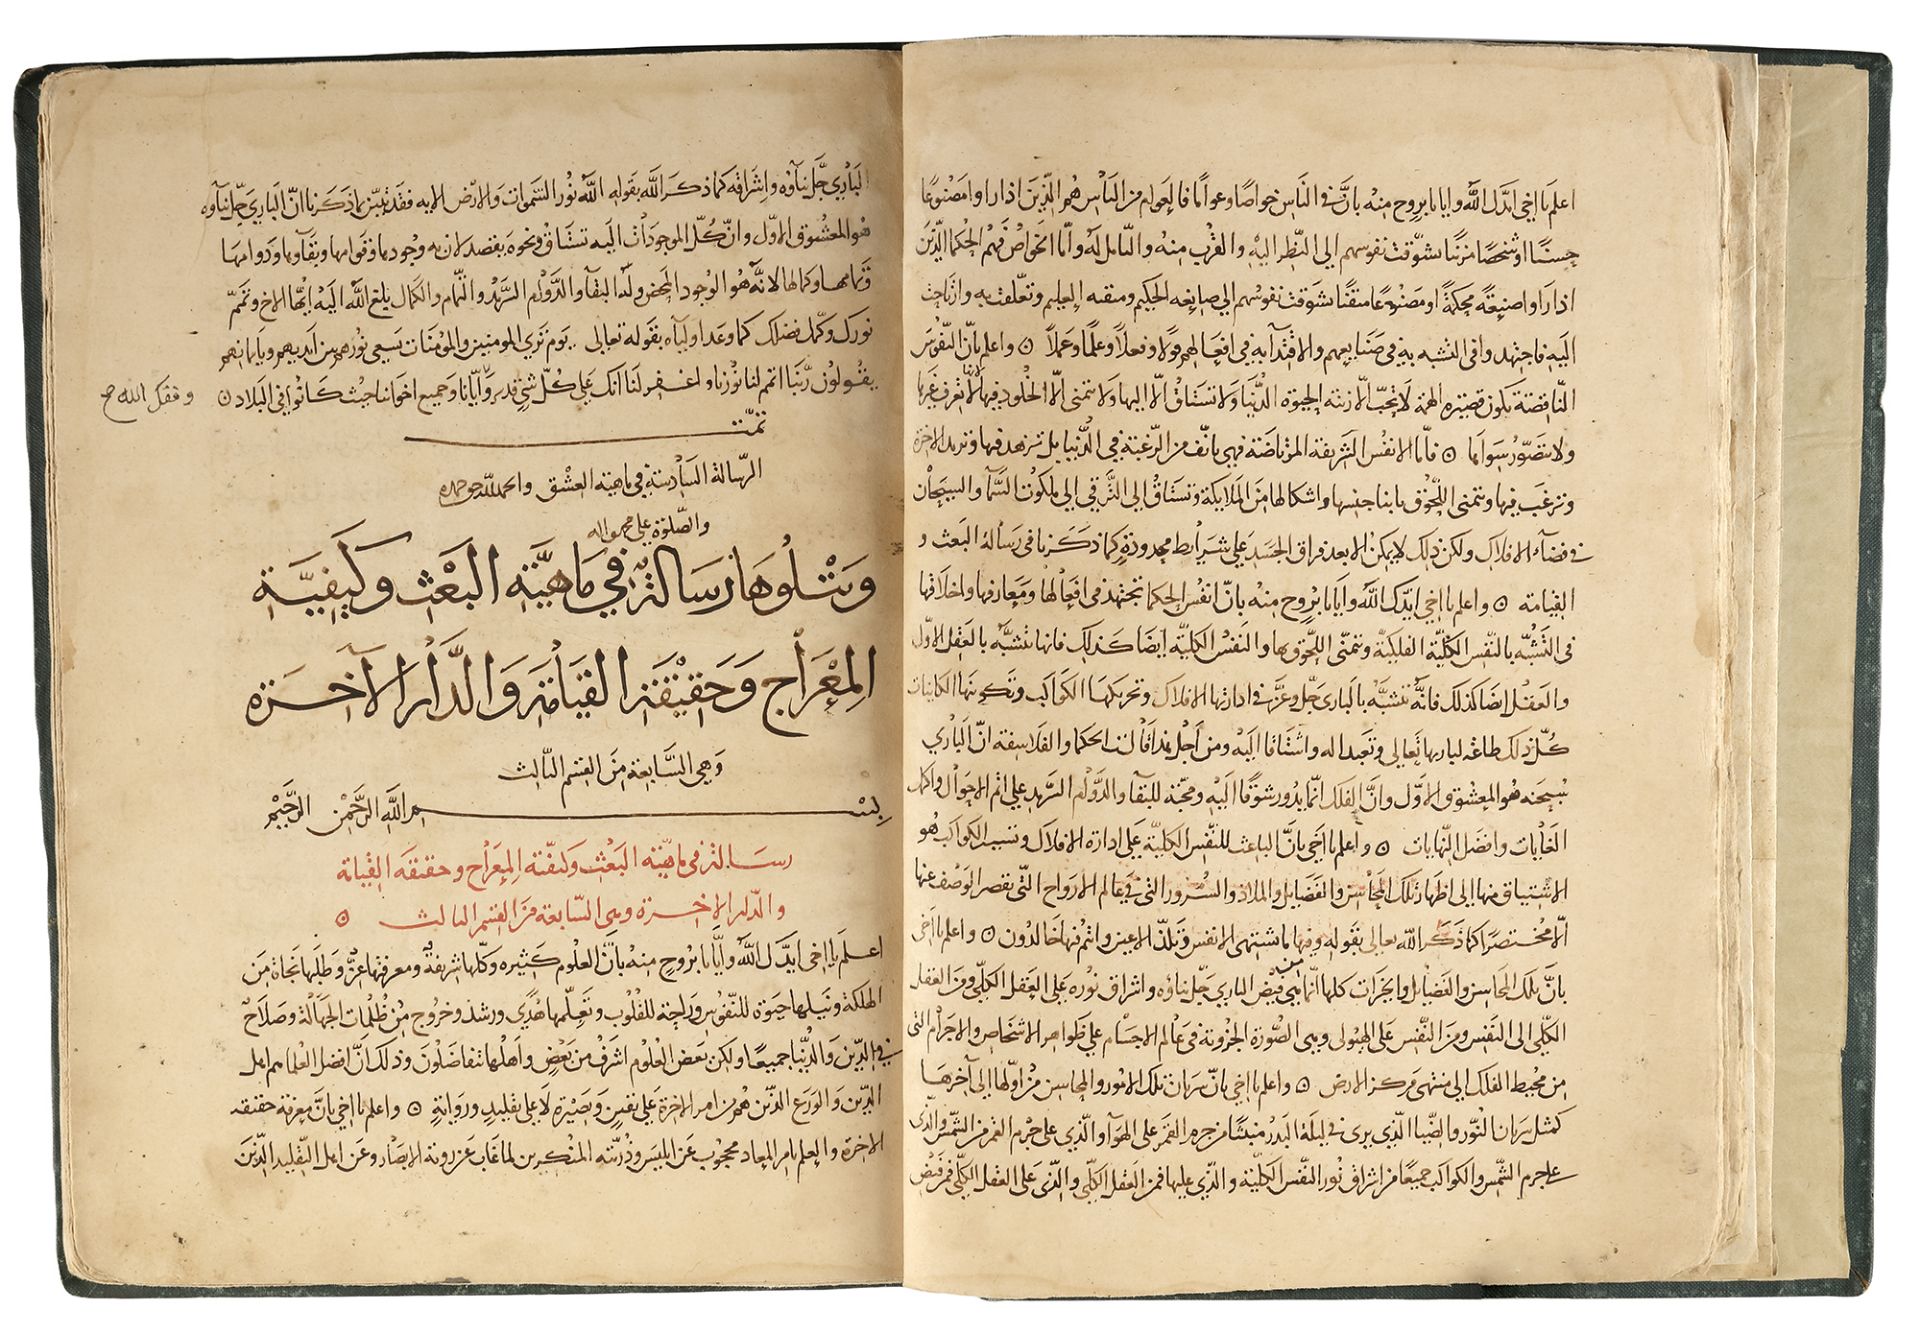 اعلم يا اخي ايدك الله وايانا بروح منه بان في الناس خواصا وعواما فالعوام من الناس هم الذين اذا راوا مصنوعا
حسنا او شخصا مزينا تشوقت نفوسهم الي النظر اليه والقرب منه والتامل له واما الخواص فهم الحكما الذين
اذا راوا صنعة محكمة او مصنوعا متقنا تشوقت نفوسهم الي صانعه الحكيم ومتقنه العليم وتعلقت به وارتاحت
اليه فاجتهدوا في التشبه به في صنايعهم والاقتدآ به في افعالهم قولا وفعلا وعلما وعملا ۞ واعلم بان النفوس
الناقصة تكون قصيرة الهمة لا تحب الا زينة الحيوة الدنيا ولا تشتاق الا اليها ولا تتمني الا الخلود فيها لانها لا تعرف غيرها
ولا تتصور سواها ۞ فاما الانفس الشريفة المرتاضة فهي تانف من الرغبة في الدنيا بل تزهد فيها وتريد الاخرة
وترغب فيها وتتمني اللحوق بابنا جنسها واشكالها من الملايكة وتشتاق الي الترقي الي ملكوت السمآ والسيحان
في فضآء الافلاك ولكن ذلك لا يمكن الا بعد فراق الجسد علي شرايط محدودة كما ذكرنا في رسالة البعث و
القيامة ۞ واعلم يا اخي ايدك الله وايانا بروح منه بان انفس الحكما تجتهد في افعالها ومعارفها واخلاقها
في التشبه بالنفس الكلية الفلكية وتتمني اللحوق بها والنفس الكلية ايضا كذلك فانها تتشبه بالعقل الاول
والعقل ايضا كذلك فانه تتشبه بالباري جل وعز في ادارتها الافلاك وتحريكها الكواكب وتكوينها الكاينات
كل ذلك طاعة لباريها تعالي وتعبدا له واشتياقا اليه ومن اجل هذا قالت الحكما والفلاسفة ان الباري
سبحنه هو المعشوق الاول وان الفلك انما يدور شوقا اليه ومحبة للبقآ والدوام السرمد علي اتم الاحوال واكمل
الغايات وافضل النهايات ۞ واعلم يا اخي بان الباعث للنفس الكلية علي ادارة الافلاك وتسيير الكواكب هو
الاشتياق منها الي اظهار تلك المحاسن والفضايل والملاذ والسرور التي في عالم الارواح التي يقصر الوصف عنها
الا مختصرا كما ذكر الله تعالي بقوله وفيها ما تشتهي الانفس وتلذ الاعين وانتم فيها خالدون ۞ واعلم يا اخي
بان تلك المحاسن والفضايل والخيرات كلها انما هي من فيض الباري جل ثناؤه واشراق نوره علي العقل الكلي ومن العقل
الكلي الي النفس ومن النفس علي الهيولي وهي الصورة الجزوية في عالم الاجسام علي ظواهر الاشخاص والاجرام التي
من محيط الفلك الي منتهي مركز الارض ۞ واعلم يا اخي بان سريان تلك الانوار والمحاسن من اولها الي آخرها
كمثل سريان النور والضيا الذي يري في ليلة البدر منبثا من جرم القمر علي الهوآ والذي علي جرم القمر من الشمس والذي
علي جرم الشمس والكواكب جميعا من اشراق نور النفس الكلية والذي عليها فمن العقل الكلي والذي علي العقل الكلي فمن فيض
الباري جل ثناؤه واشراقه كما ذكر الله بقوله الله نور السموات والارض الايه فقد تبين بما ذكرنا ان الباري جل ثناؤه
هو المعشوق الاول وان كل الموجودات اليه تشتاق ونحوه يقصد لان به وجودها وقوامها وبقآوها ودوامها
وتمامها وكمالها لانه هو الوجود المحض وله البقآ والدوام السرمد والتمام والكمال بلغ الله اليه ايها الاخ وتمم
نورك وكمل فضلك كما وعد اوليآه بقوله تعالي يوم تري المومنين والمومنات يسعي نورهم بين ايديهم وبايمانهم
يقولون ربنا اتمم لنا نورنا واغفر لنا انك علي كل شي قدير وايانا وجميع اخواننا حيث كانوا في البلاد ۞
تمت
الرسالة السادسة في ماهية العشق والحمد لله حق حمده
والصلوة علي محمد واله
ويتلوها رسالة في ماهية البعث وكيفية
المعراج وحقيقة القيامة والدار الآخرة
وهي السابعة من القسم الثالث
بسم الله الرحمن الرحيم
رسالة في ماهية البعث وكيفية المعراج وحقيقه القيامة
والدار الاخرة وهي السابعة من القسم الثالث ۞
اعلم يا اخي ايدك الله وايانا بروح منه بان العلوم كثيره وكلها شريفة ومعرفتها عز وطلبها نجاة من
الهلكة ونيلها حيوة للنفوس وراحة للقلوب وتعلمها هدي ورشد وخروج من ظلمات الجهالة وصلاح
في الدين والدنيا جميعا ولكن بعض العلوم اشرف من بعض واهلها متفاضلون وذلك ان افضل العلما هم اهل
الدين والورع الذين هم من امر الاخرة علي يقين وبصيرة لا علي تقليد ورواية ۞ واعلم يا اخي بان معرفة حقيقة
الاخرة والعلم بامر المعاد محجوب عن ابليس وذريته المنكرين لما غاب عن روية الابصار وعن اهل التقليد الذين